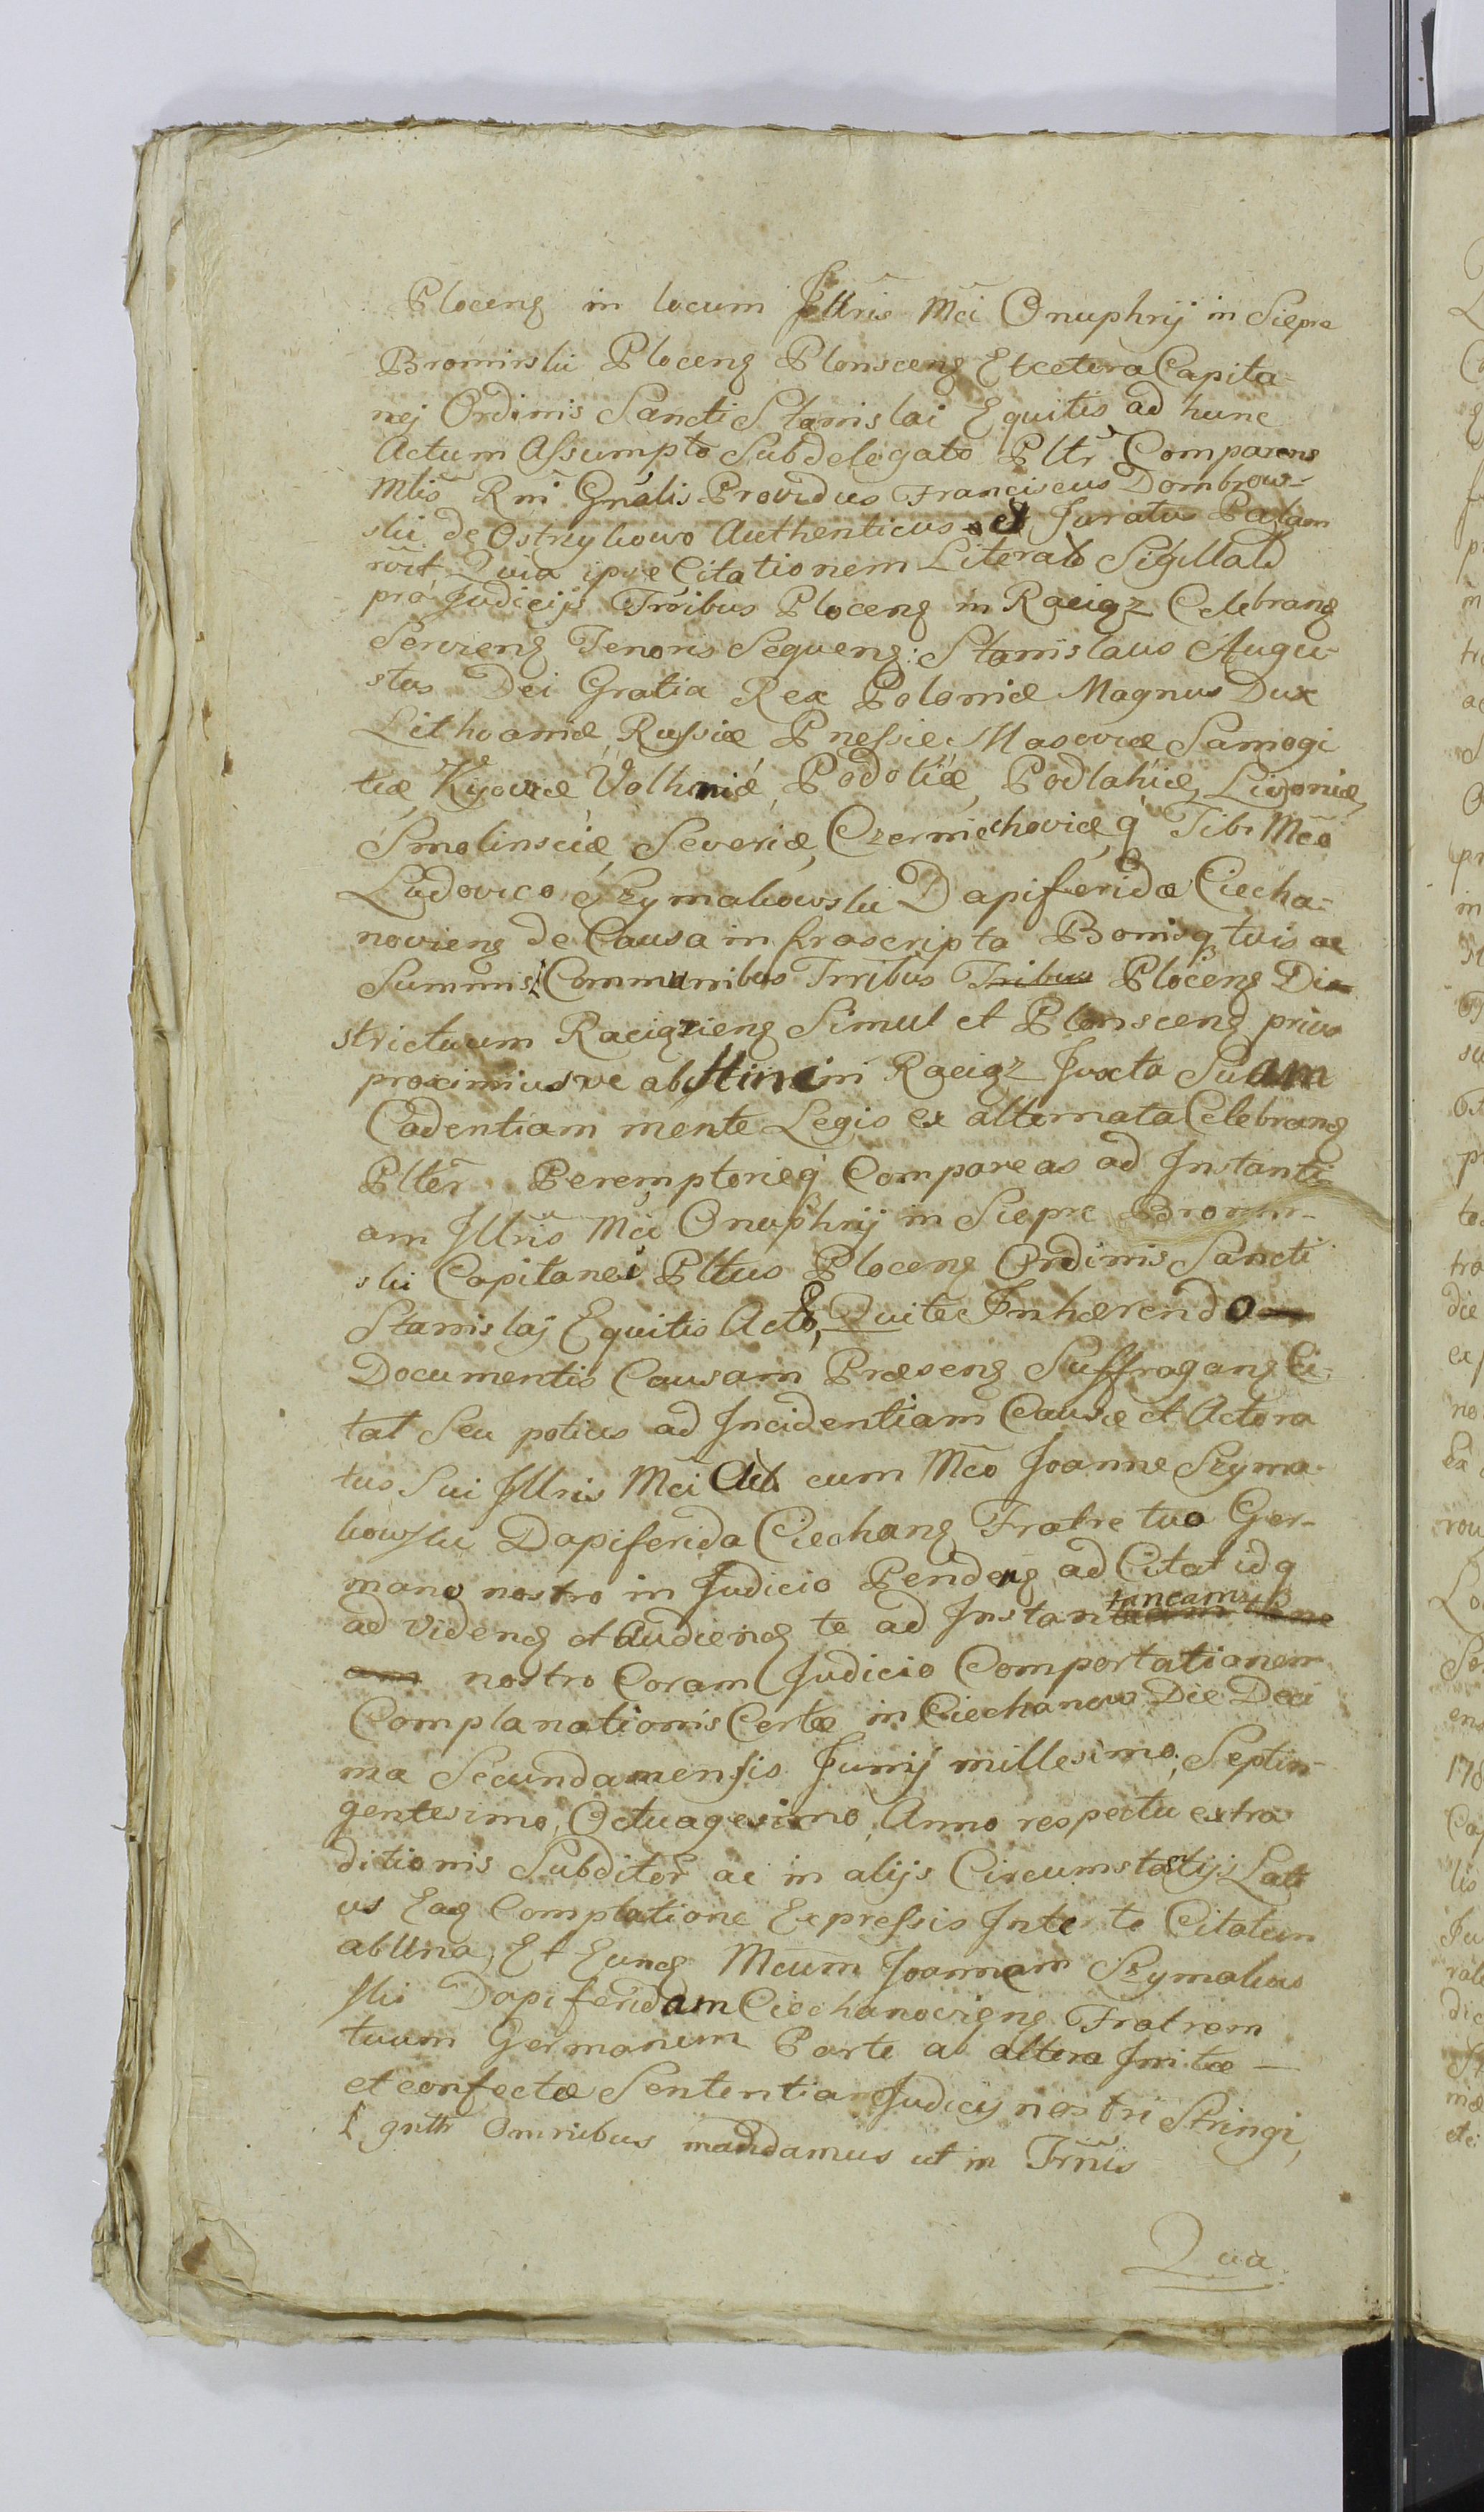 Ploceng in locum Jllris Mci Onuphrij in Siepre
Bromirski Ploceng Plonsceng Etcetera Capita-
nej Ordinis Sancti Stanislai Equitis ad hunc
Actum Assumpto Subdelegato Pltr Comparens
Mlis Rni Gnalis Providus Franciscus Dombrow-
ski de Ostrzykowo Authenticus et Juratus Palam
rcvit Quia ipse Citationem Literal Sigillal
pro Judicijs Trribus Ploceng in Raciąz Celebrang
Servieng Tenoris Sequeng: Stanislaus Augu-
stus Dei Gratia Rex Poloniæ Magnus Dux
Lithvaniæ, Russiæ Prussiæ Masoviæ Samogi
tiæ, Kijoviæ, Volhiniæ, Podoliæ, Podlahiæ, Livoniæ,
Smolinsciæ, Severiæ, Czerniechoviæq Tibi Mco
Ludovico Szymakowski Dapiferidæ Ciecha-
novieng de Causa infrascripta Bonisq tuis ac
Summis Communibus Trribus Tribus Ploceng Di
strictuum Raciązieng Simul et Plonsceng prius
proximiusve abhinc in Raciąz Juxta Suam
Cadentiam mente Legis ex alternata Celebrang
Plter Peremptorieq Compareas ad Instanti
am Jllris Mci Onuphrij in Siepre Bromir-
ski Capitanei Pltus Ploceng Ordinis Sancti
Stanislaj Equitis Act, Qui te Inhærendo
Documentis Causam Præseng Suffragang Ci-
tat Seu potius ad Incidentiam Causæ et Actora
tus Sui Jllris Mci Act cum Mco Joanne Szyma-
kowski Dapiferida Ciechang Fratre tuo Ger-
mano nostro in Judicio Pendeng ad Citat idq
ad Videng et Audieng te ad Instan
nostro Coram Judicio Comportationem
Complanationis Certæ in Ciechanow Die Deci
ma Secunda mensis Junij millesimo Septin-
gentesimo, Octuagesimo, Anno respectu extra
ditionis Subditor ac in alijs Circumstatijs Lati
us Eag Complatione Expressis Inter te Citatum
ab Una, Et Eung Mcum Joannem Szymakow
ski Dapiferidam Ciechanovieng Fratrem
tuum Germanum Parte ab altera Initæ
et confectæ Sententia Judicij nostri Stringi,
gntr Omnibus mandamus ut in Trnis
Qua